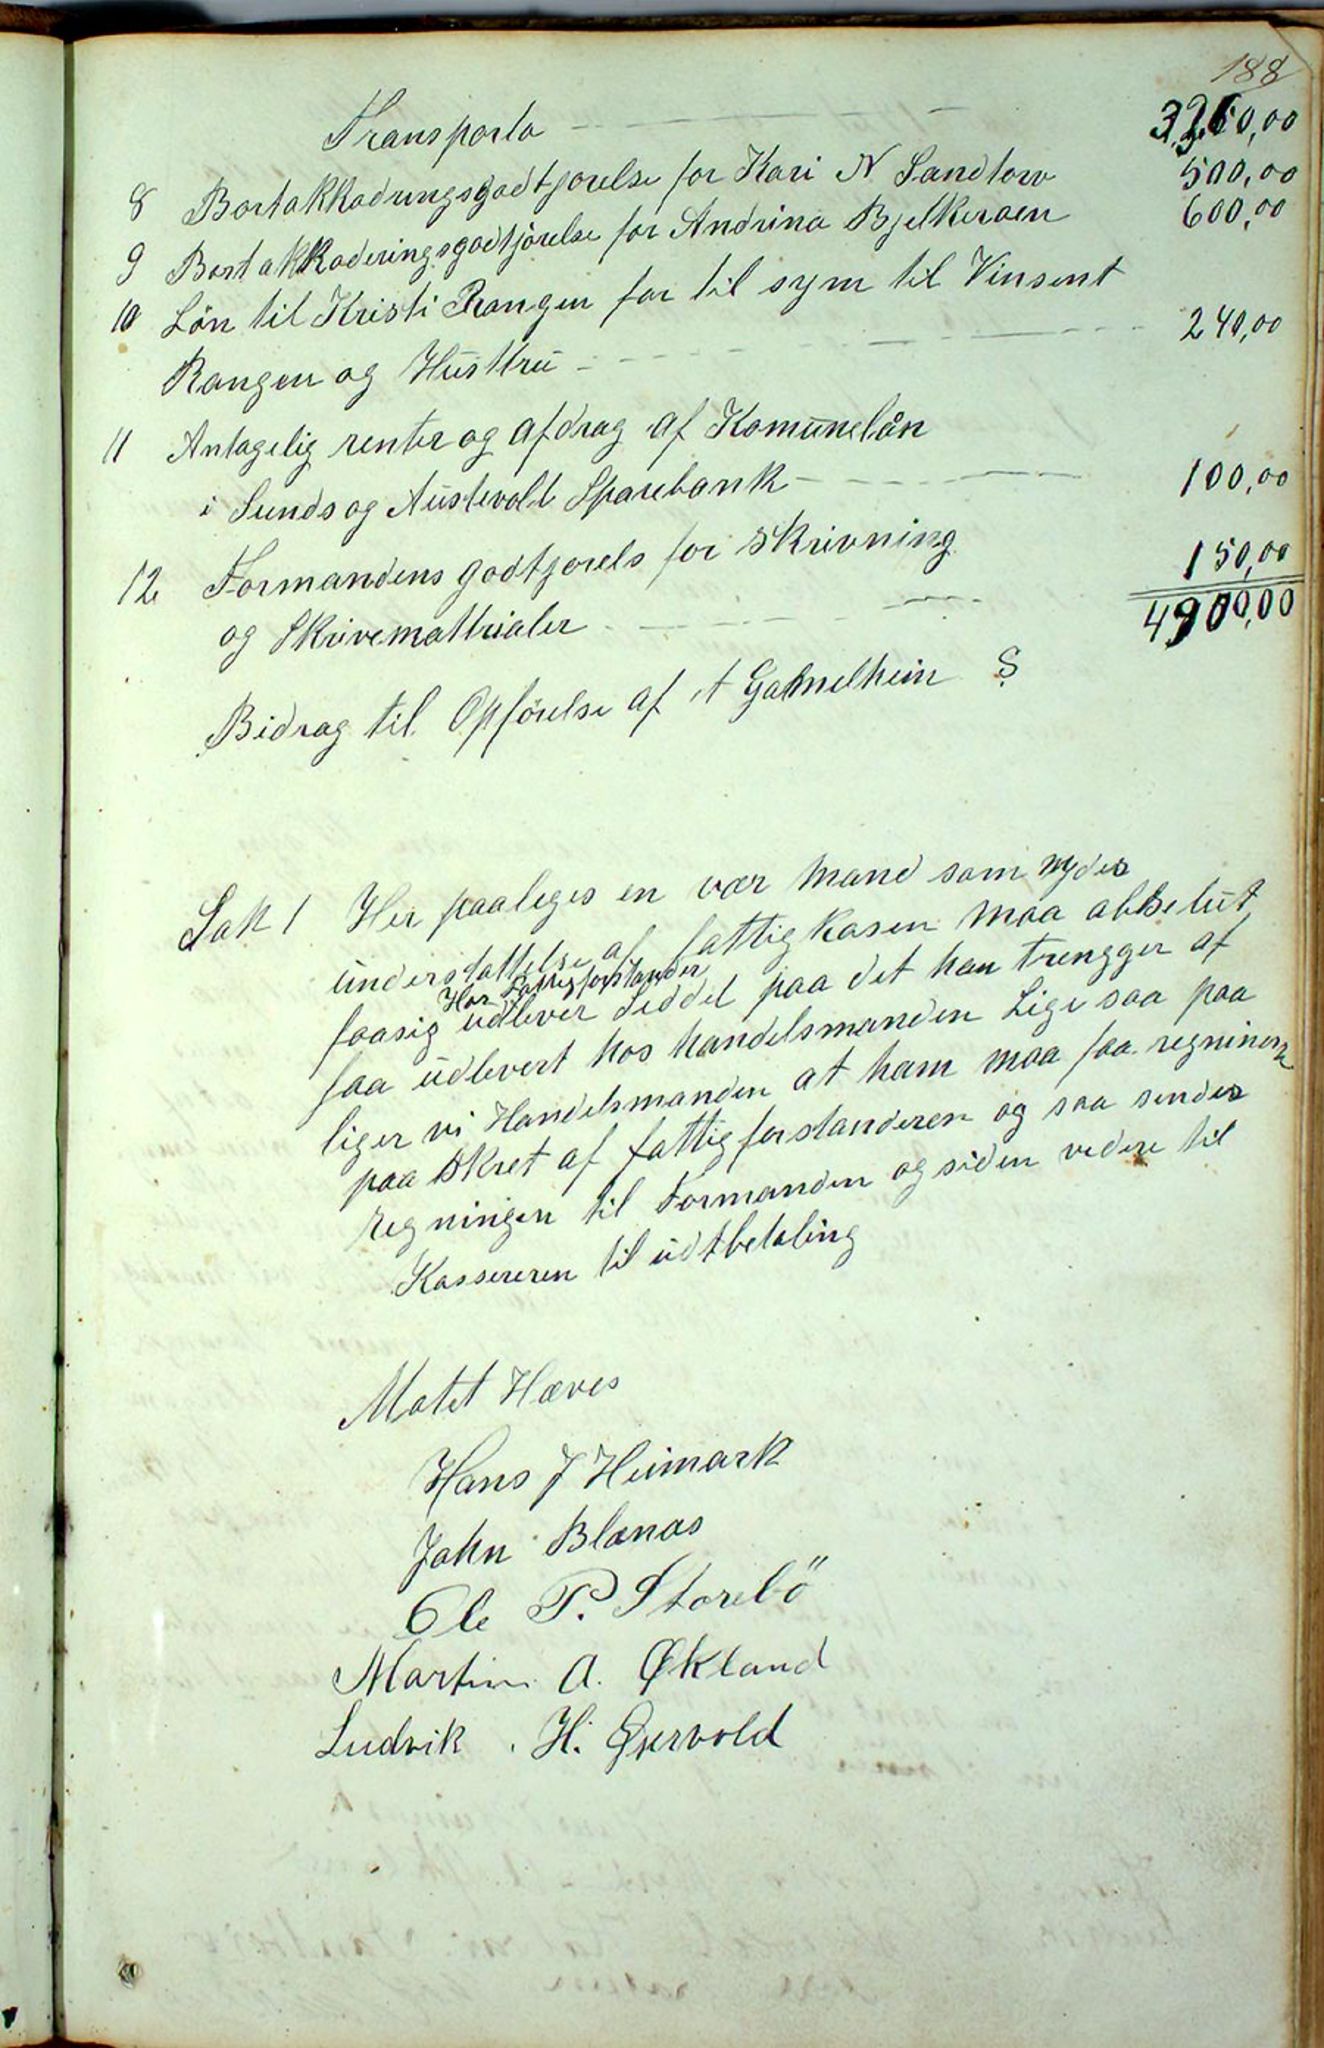 188
Transporto 3260,00
8 Bortakkodringsgodtjorelse for Kari N Sandtorv 500,00
9 Bortakkoderingsgodtjörelse for Andrina Bjelkeroen 600,00
10 Lön til Kristi Rangen for til syn til Vinsent
Rangen og Hustru 240,00
11 Antagelig renter og afdrag af Komunelån
i Sunds og Austevold Sparebank 100,00
12 Formandens godtjorels for skrivning
og Skrivematrialer 150,00
4900,00
Bidrag til Opförelse af et Gamelheim S
Sak 1 Her paaleges en vær mand som nyder
understøttelse af fattigkasen maa abselut
Hos Fattigforstander
faasig udlever Seddel paa det han trengger af
faa udlevert hos handelsmanden Lige saa paa
liger vi Handelsmanden at ham maa faa regninern
paa skret af fattigforstanderen og saa sender
regningen til Formanden og siden vedere til
Kassereren til üdtbetaling
Møtet Hæves
Hans J Heimark
John Blænæs
Ole P. Storebö
Martin A. Økland
Ludvik H. Østervold